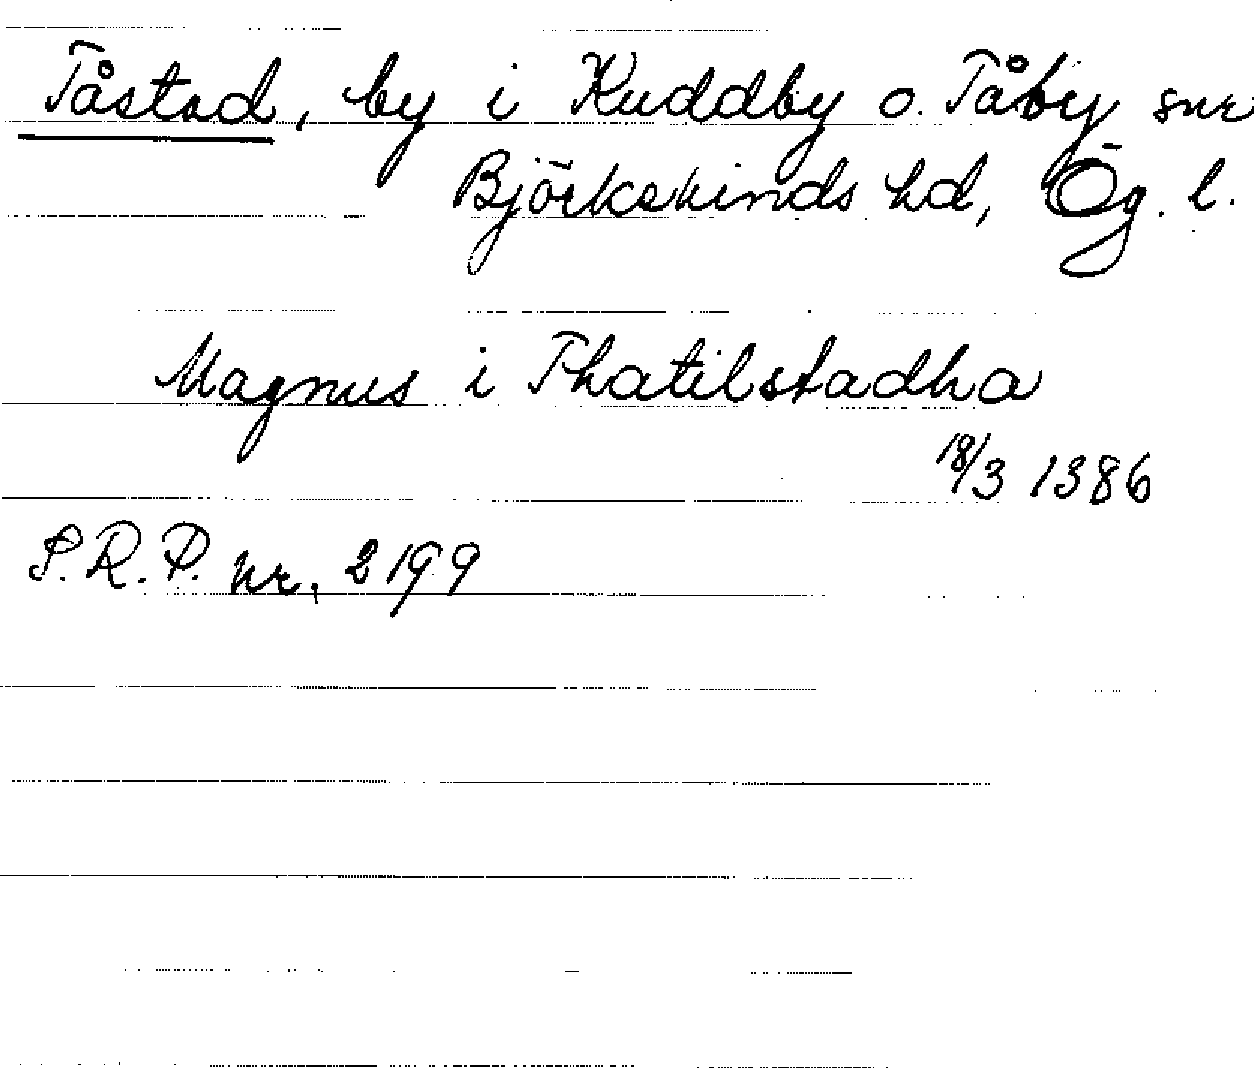 Tåstad, by i Kuddby o. Tåby snr
Björkekinds hd, Ög. l.
Magnus i Thatilstadha
18/3 1386
S.R.P. nr. 2199